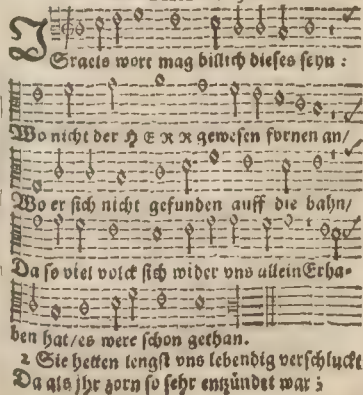 Israels wort mag billich dieses seyn :
Wo nicht der HERR gewesen fornen an/
Wo er sich nicht gefunden auff die bahn/
Da so viel volck sich wider vns allein Erha-
ben hat/es were schon gethan.
2 Sie hetten lengst vns lebendig verschluckt
Da als jhr zorn so sehr entzündet war :